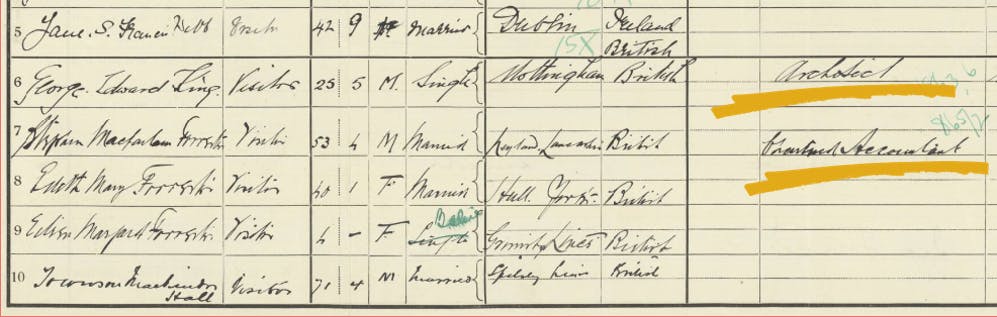 5 Jane. S. Francis Visitor 42 9 Married Dublin Ireland
15X British
6 George. Edward King. Visitor 25 5 M. Single Nottingham British Architect
7 Stephen Macfarlan Forrester Visitor 53 4 M Married Leyland Lancashire British Chartered Accountant
865/2
8 Edith Mary Forrester Visitor 40 1 F. Married Hull. Yorks. British
9 Eileen Margaret Forrester Visitor 4 - F. Single Grimsby Lincs British
10 Townson Visitor 71 4 M Married Spilsby Lincs British
Hall